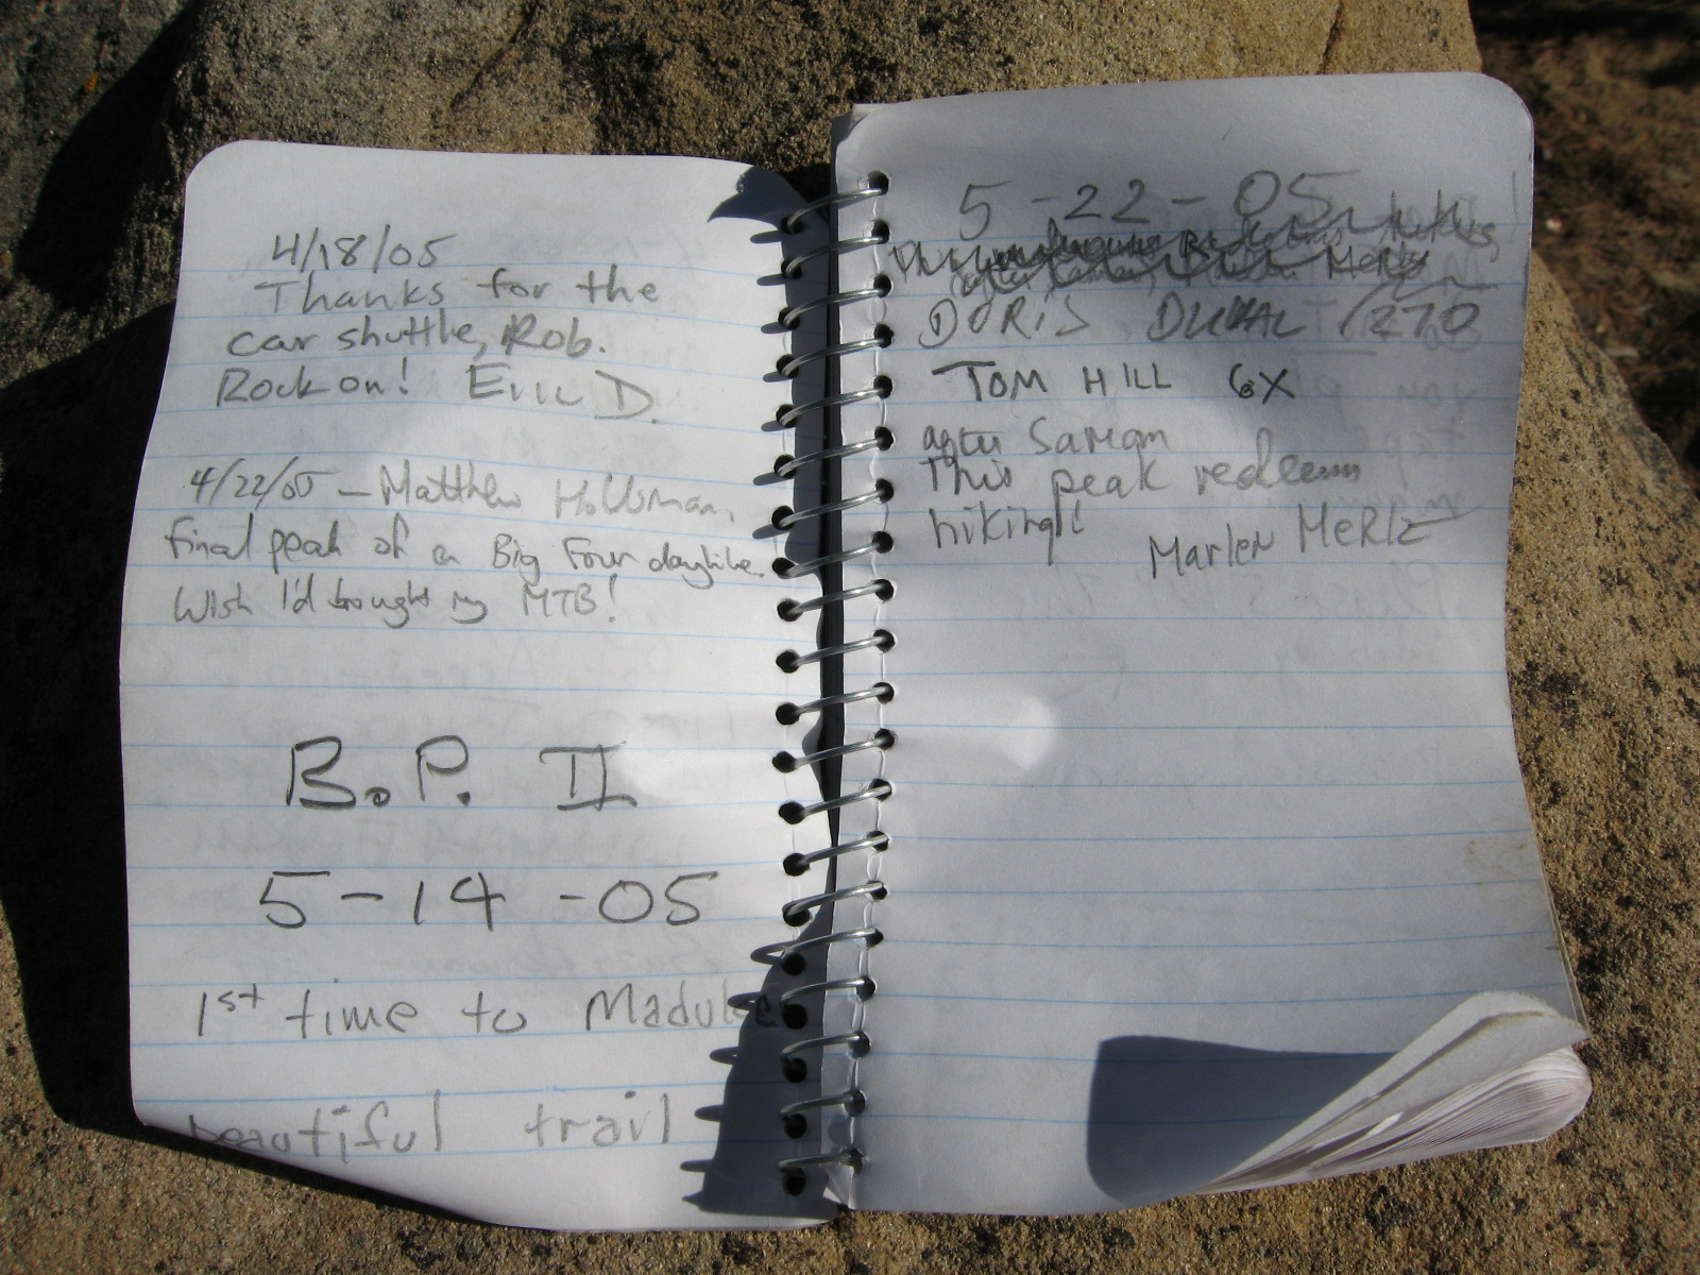 4/18/05
Thanks for the
car shuttle, Rob.
Rock on! EVIL D.
4/22/05 - Matthew
Final peak of a Big Four dayhike!
Wish I'd brought my MTB!
B.P. II
5-14-05
1st time to Madulce
beautiful trail
5-22-05
DORIS DUVAL /270
TOM HILL 6X
after Samon
This peak redeems
hiking!!
Marlen MeRtz